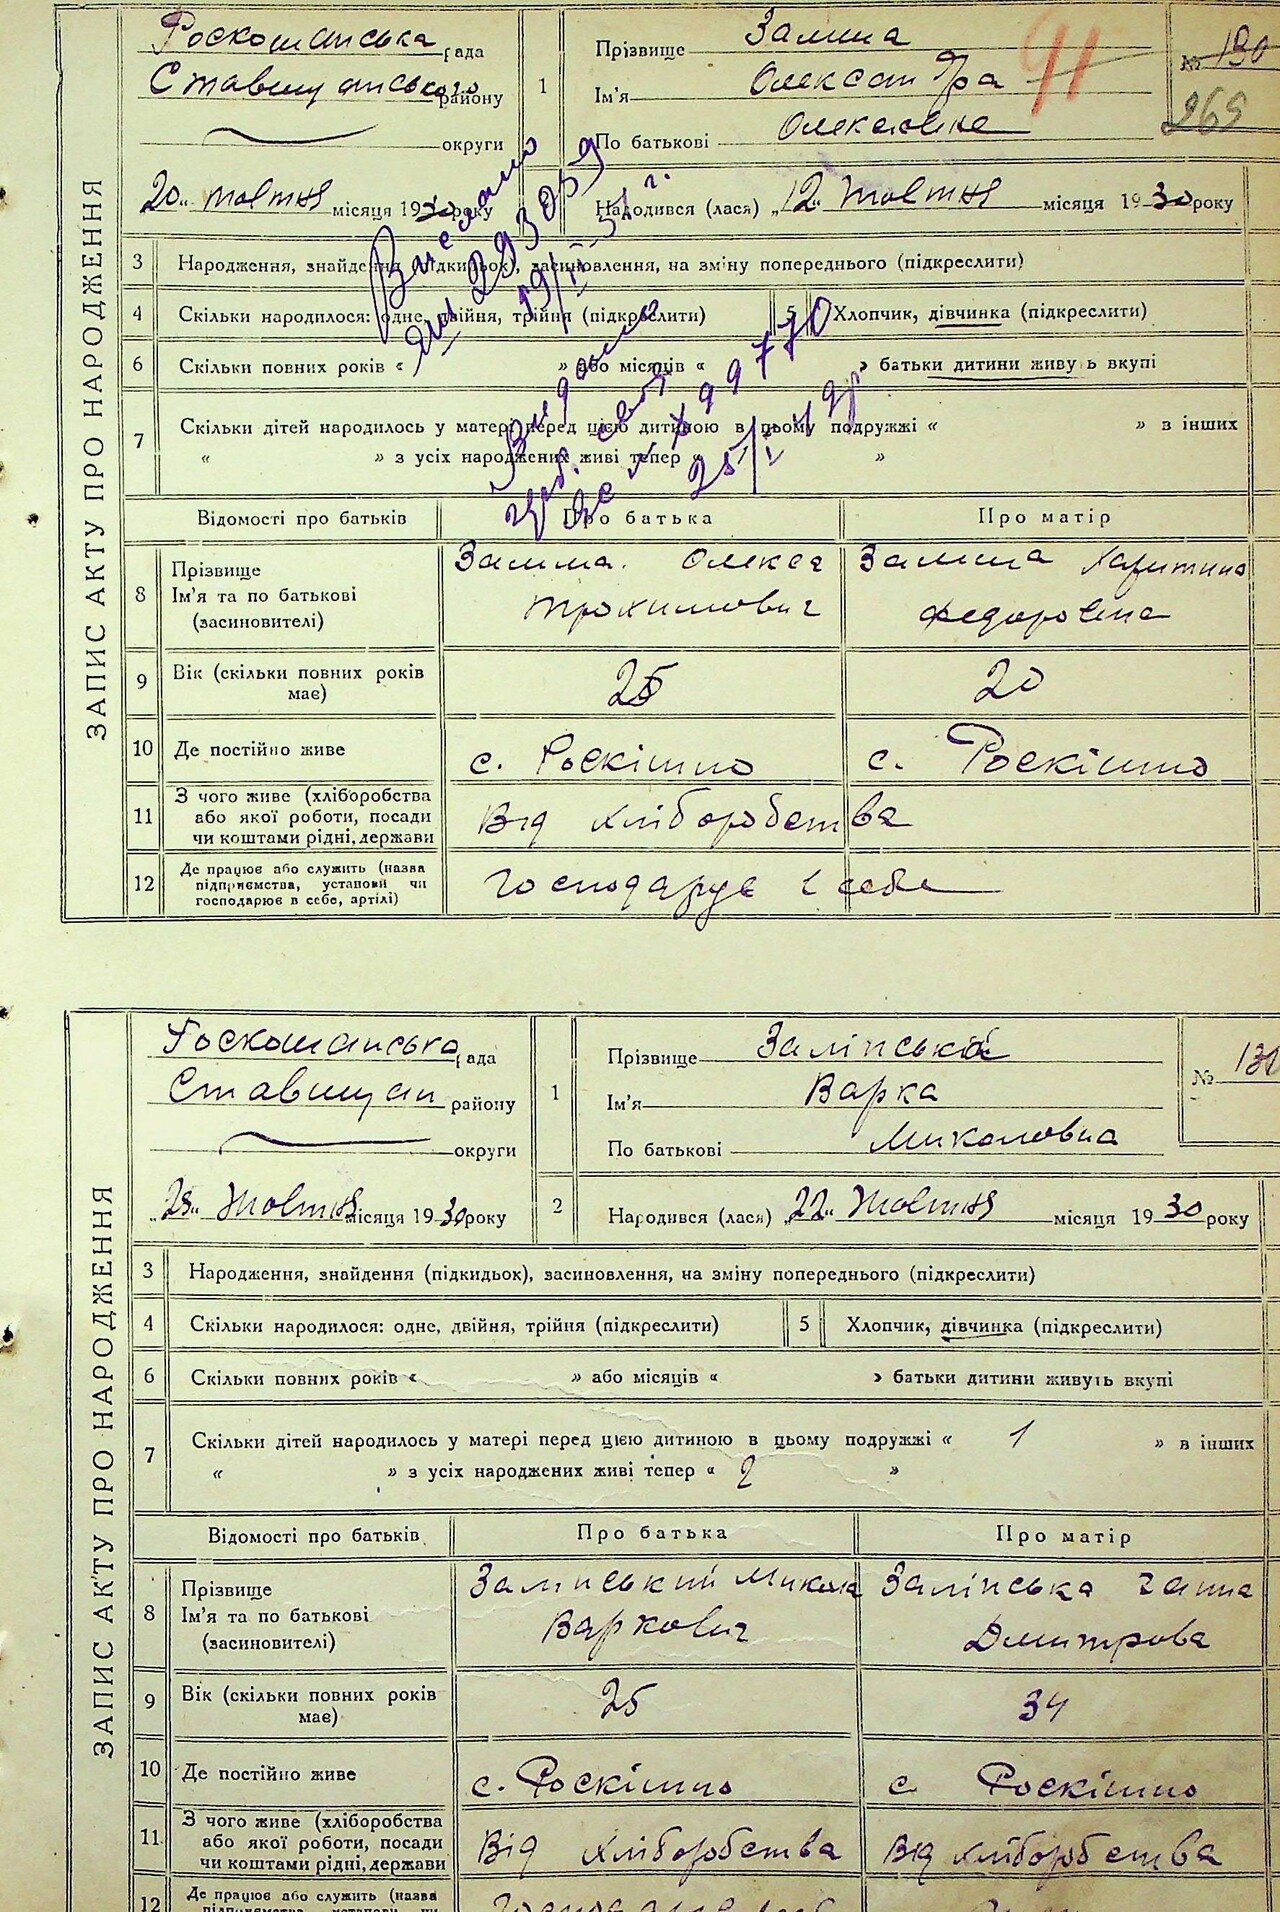 ЗАПИС АКТУ ПРО НАРОДЖЕННЯ
Роскошанська рада
Ставищанського району
округи
20 жовтня місяця 1930 року
1
Прізвище Залина
Ім'я Олександра
По батькові Олексіївна
91
№ 130
269
Народився (лася) „12" жовтня місяця 1930 року
3 Народження, знайдення (підкидьок), засиновлення, на зміну попереднього (підкреслити)
4 Скільки народилося: одне, двійня, трійня (підкреслити) 5 Хлопчик, дівчинка (підкреслити)
6 Скільки повних років « » або місяців « » батьки дитини живуть вкупі
7 Скільки дітей народилось у матері перед цією дитиною в цьому подружжі « » в інших
« » з усіх народжених живі тепер « »
Выслано
293059
Видано
99770
Відомості про батьків Про батька Про матір
8 Прізвище
Ім'я та по батькові
(засиновителі)
Залина Олекса
Трохимович
Залина Харитина
Федоровна
9 Вік (скільки повних років має) 25 20
10 Де постійно живе с. Роскішно с. Роскішно
11 З чого живе (хліборобства
або якої роботи, посади
чи коштами рідні, держави
Від хліборобства
12 Де працює або служить (назва
підприємства, установи чи
господарює в себе, артілі)
Господарує в себе
ЗАПИС АКТУ ПРО НАРОДЖЕННЯ
Роскошанська рада
Ставищан району
округи
„25" жовтня місяця 1930 року
1
Прізвище Залінська
Ім'я Варка
По батькові Миколовна
№ 131
2 Народився (лася) „22" жовтня місяця 1930 року
3 Народження, знайдення (підкидьок), засиновлення, на зміну попереднього (підкреслити)
4 Скільки народилося: одне, двійня, трійня (підкреслити) 5 Хлопчик, дівчинка (підкреслити)
6 Скільки повних років « » або місяців « » батьки дитини живуть вкупі
7 Скільки дітей народилось у матері перед цією дитиною в цьому подружжі « 1 » в інших
« » з усіх народжених живі тепер « 2 »
Відомості про батьків Про батька Про матір
8 Прізвище
Ім'я та по батькові
(засиновителі)
Залінський Микола
Варкович
Залінська Ганна
Дмитрова
9 Вік (скільки повних років має) 25 34
10 Де постійно живе с. Роскішно с Роскішно
11 З чого живе (хліборобства
або якої роботи, посади
чи коштами рідні, держави
Від хліборобства Від хліборобства
12 Де працює або служить (назва